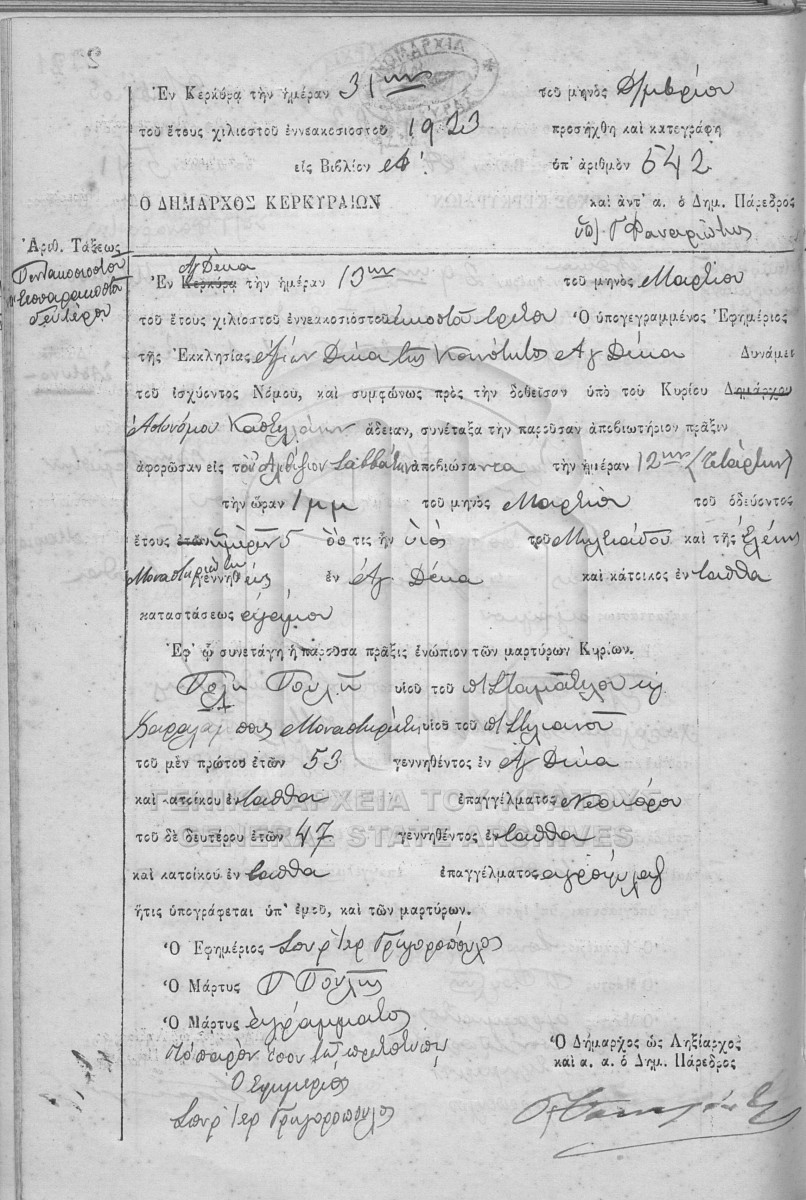 Ἐν Κερκύρᾳ τὴν ἡμέραν 31ην τοῦ μηνὸς Δ/μβρίου
τοῦ ἔτους χιλιοστοῦ ἐννεακοσιοστοῦ 1923 προσήχθη καὶ κατεγράφη
εἰς Βιβλίον ὑπ' ἀριθμὸν 542
Ὁ ΔΗΜΑΡΧΟΣ ΚΕΡΚΥΡΑΙΩΝ καὶ ἀντ' α. ὁ Δημ. Πάρεδρος
Ἀριθ. Τάξεως
Πεντακοσιοστὸν
τεσσαρακοστὸν
δεύτερον
Ἁγ Δέκα
Ἐν Κερκύρᾳ τὴν ἡμέραν 13ην τοῦ μηνὸς Μαρτίου
τοῦ ἔτους χιλιοστοῦ ἐννεακοσιοστοῦ εἰκοστοῦ τρίτου Ὁ ὑπογεγραμμένος Ἐφημέριος
τῆς Ἐκκλησίας Ἁγίων Δέκα της Κοινότητος Αγ Δέκα Δυνάμει
τοῦ ἰσχύοντος Νόμου, καὶ συμφώνως πρὸς τὴν δοθεῖσαν ὑπὸ τοῦ Κυρίου Δημάρχου
Ἀστυνόμου Καστελλάνων ἄδειαν, συνέταξα τὴν παροῦσαν ἀποβιωτήριον πρᾶξιν
ἀφορῶσαν εἰς τὸν ἀποβιώσαντα τὴν ἡμέραν 12ην
τὴν ὥραν 1 μμ τοῦ μηνὸς Μαρτίου τοῦ ὁδεύοντος
ἔτους ἐτῶν ἡμερῶν 5 ὅστις ἦν υἱὸς τοῦ Μιλτιάδου καὶ τῆς Ἑλένης
Μοναστηριώτη γεννηθεὶς ἐν Ἁγ Δέκα καὶ κάτοικος ἐνταῦθα
καταστάσεως ἀγάμου
Ἐφ' ᾧ συνετάγη ἡ παροῦσα πρᾶξις ἐνώπιον τῶν μαρτύρων Κυρίων.
Πουλῆ υἱοῦ τοῦ
Χαραλάμπους Μοναστηριώτη υἱοῦ τοῦ Στυλιανοῦ
τοῦ μὲν πρώτου ἐτῶν 53 γεννηθέντος ἐν Ἁγ Δέκα
καὶ κατοίκου ἐνταῦθα ἐπαγγέλματος Νεωκόρου
ΓΕΝΙΚΑ ΑΡΧΕΙΑ ΤΟΥ ΚΡΑΤΟΥΣ
GENERAL STATE ARCHIVES
τοῦ δὲ δευτέρου ἐτῶν 47 γεννηθέντος ἐνταῦθα
καὶ κατοίκου ἐνταῦθα ἐπαγγέλματος ἀγροφύλαξ
ἥτις ὑπογράφεται ὑπ' ἐμοῦ, καὶ τῶν μαρτύρων.
Ὁ Ἐφημέριος Σπυρ Ἱερ Γρηγορόπουλος
Ὁ Μάρτυς Πουλῆς
Ὁ Μάρτυς ἀγράμματος
Τὸ παρὸν ἴσον τῷ πρωτοτύπῳ
Ὁ Ἐφημέριος
Σπυρ Ἱερ Γρηγορόπουλος
Ὁ Δήμαρχος ὡς Ληξίαρχος
καὶ α. α. ὁ Δημ. Πάρεδρος